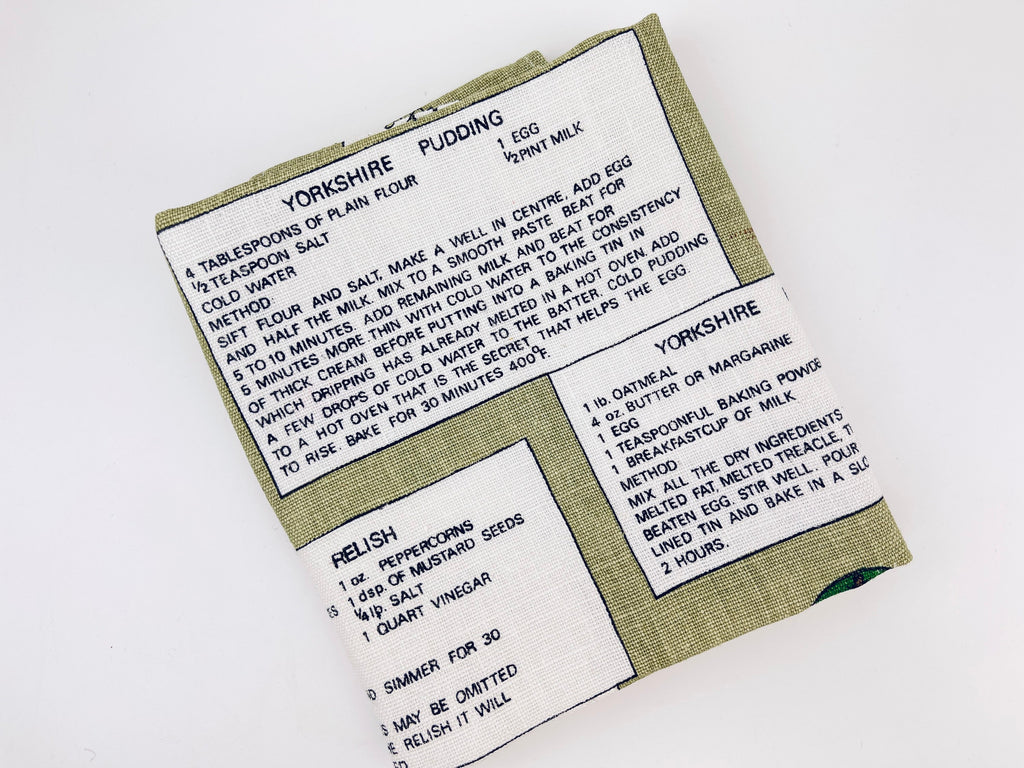 YORKSHIRE PUDDING
4 TABLESPOONS OF PLAIN FLOUR
1 EGG
½ TEASPOON SALT
½ PINT MILK
COLD WATER
METHOD:
SIFT FLOUR AND SALT, MAKE A WELL IN CENTRE, ADD EGG
AND HALF THE MILK. MIX TO A SMOOTH PASTE BEAT FOR
5 TO 10 MINUTES. ADD REMAINING MILK AND BEAT FOR
5 MINUTES MORE THIN WITH COLD WATER TO THE CONSISTENCY
OF THICK CREAM BEFORE PUTTING INTO A BAKING TIN IN
WHICH DRIPPING HAS ALREADY MELTED IN A HOT OVEN. ADD
A FEW DROPS OF COLD WATER TO THE BATTER. COLD PUDDING
TO A HOT OVEN THAT IS THE SECRET THAT HELPS THE EGG
TO RISE. BAKE FOR 30 MINUTES 400°F.
YORKSHIRE
1 lb. OATMEAL
4 oz. BUTTER OR MARGARINE
1 EGG
1 TEASPOONFUL BAKING POWDE
1 BREAKFASTCUP OF MILK
METHOD
MIX ALL THE DRY INGREDIENTS
MELTED FAT, MELTED TREACLE, T
BEATEN EGG. STIR WELL. POUR
LINED TIN AND BAKE IN A SLO
2 HOURS.
RELISH
1 oz. PEPPERCORNS
1 dsp. OF MUSTARD SEEDS
ES ¼ lp. SALT
1 QUART VINEGAR
ND SIMMER FOR 30
S MAY BE OMITTED
E RELISH IT WILL
ED